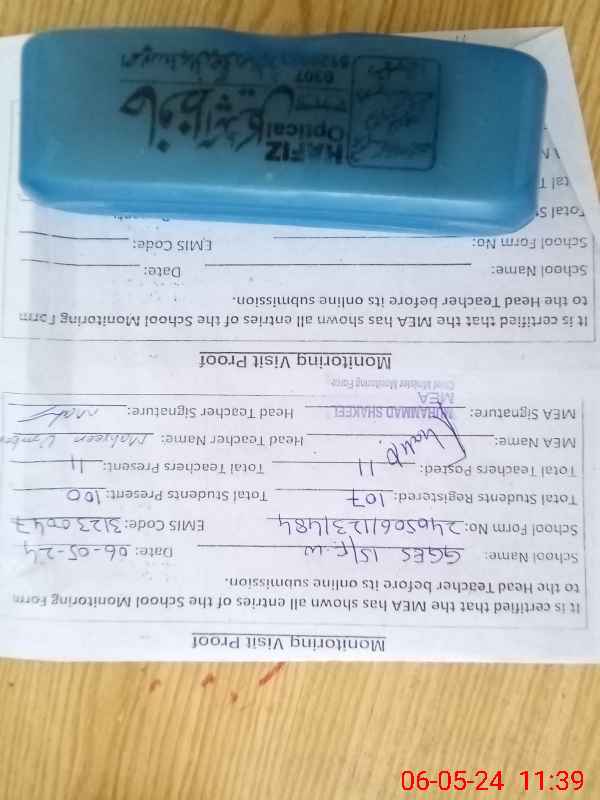 Monitoring Visit Proof
It is certified that the MEA has shown all entries of the School Monitoring Form
to the Head Teacher before its online submission.
School Name: GGES 15/F.W Date: 06-05-24
School Form No: 24050611231484 EMIS Code: 31230047
Total Students Registered: 107 Total Students Present: 100
Total Teachers Posted: 11 Total Teachers Present: 11
MEA Name: Head Teacher Name: Mahreen
MEA Signature: MUHAMMAD SHAKEEL Head Teacher Signature:
MEA
Chief Minister Monitoring Force
Monitoring Visit Proof
It is certified that the MEA has shown all entries of the School Monitoring Form
to the Head Teacher before its online submission.
School Name: Date:
School Form No: EMIS Code:
Total
HAFIZ
Optical
حافظ آپٹیکل
06-05-24 11:39